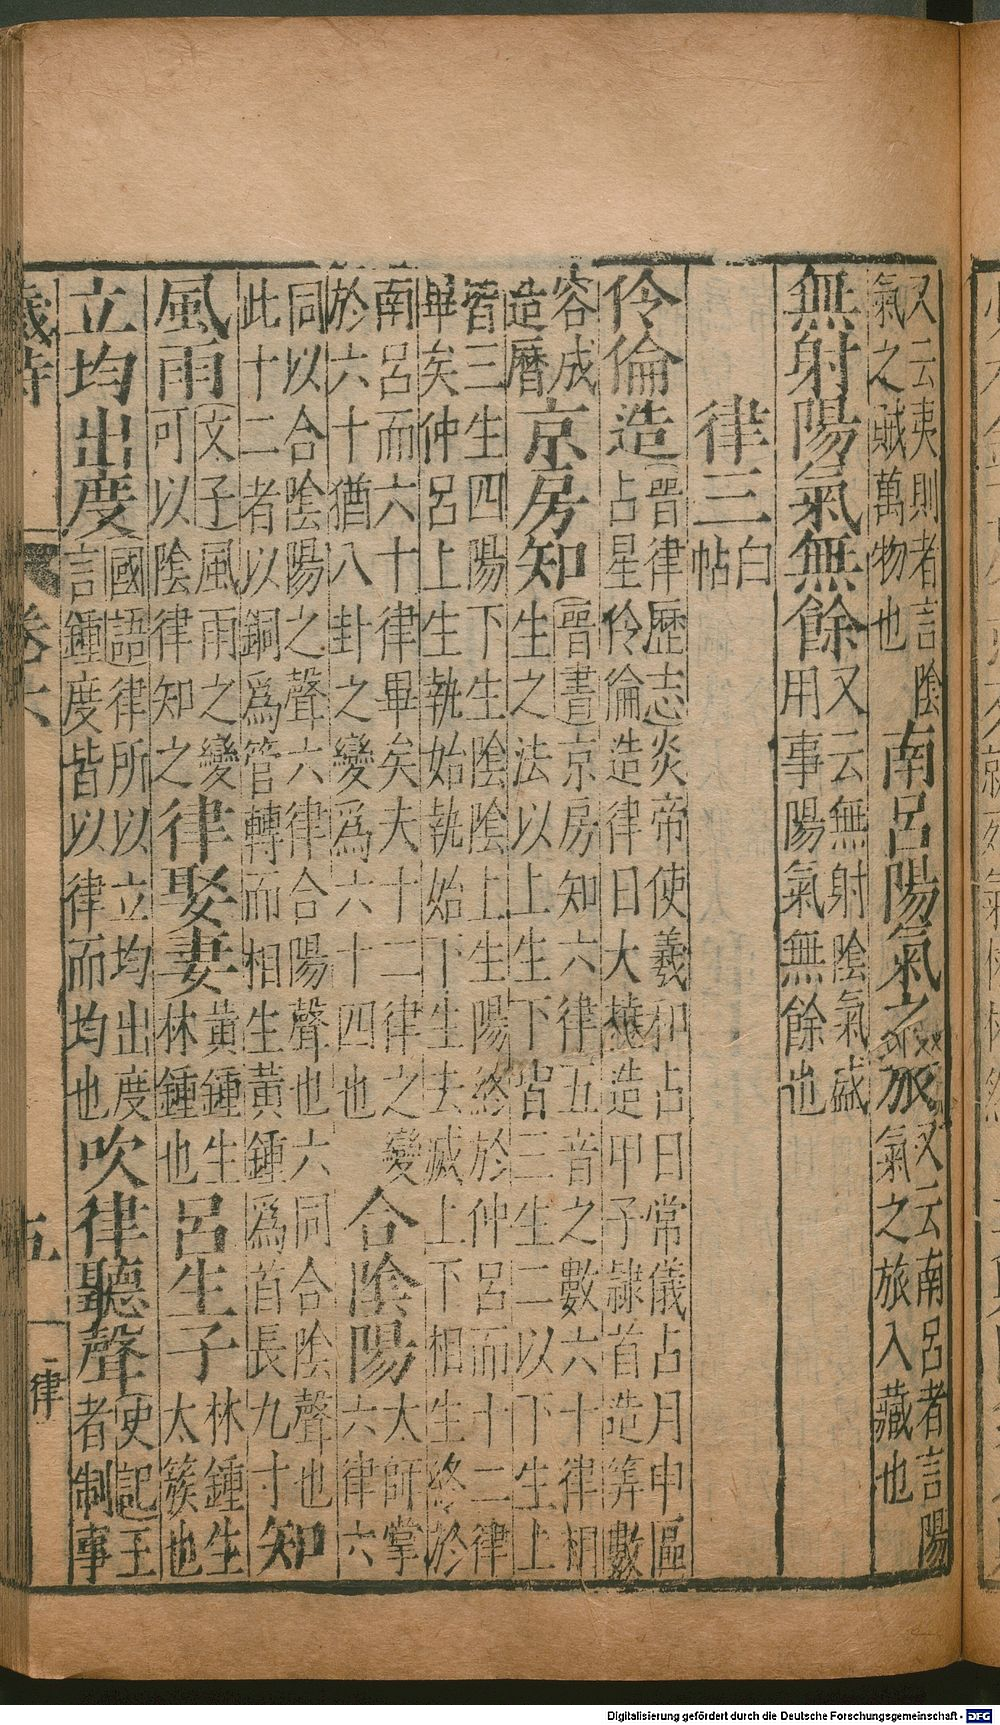 又云夷則者言陰
氣之賊萬物也
南呂陽氣之旅
又云南呂者言陽
氣之旅入藏也
無射陽氣無餘
又云無射陰氣盛
用事陽氣無餘也
律三
白
帖
伶倫造
晉律歷志炎帝使羲和占日常儀占月申區
占星伶倫造律日大橈造甲子隷首造筭數
容成
造曆
京房知
晉書京房知六律五音之數六十律相
生之法以上生下皆三生二以下生上
皆三生四陽下生陰陰上生陽終於仲呂而十二律
畢矣仲呂上生執始執始下生去滅上下相生終於
南呂而六十律畢矣夫十二律之變
於六十猶八卦之變爲六十四也
合陰陽
太師掌
六律六
同以合陰陽之聲六律合陽聲也六同合陰聲也
此十二者以銅爲管轉而相生黃鍾爲首長九寸
知
風雨
文子風雨之變
可以陰律知之
律娶妻
黃鍾生
林鍾也
呂生子
林鍾生
太簇也
立均出度
國語律所以立均出度
言鍾度皆以律而均也
吹律聽聲
史記王
者制事
歲時
卷六
五
律
Digitalisierung gefördert durch die Deutsche Forschungsgemeinschaft - DFG